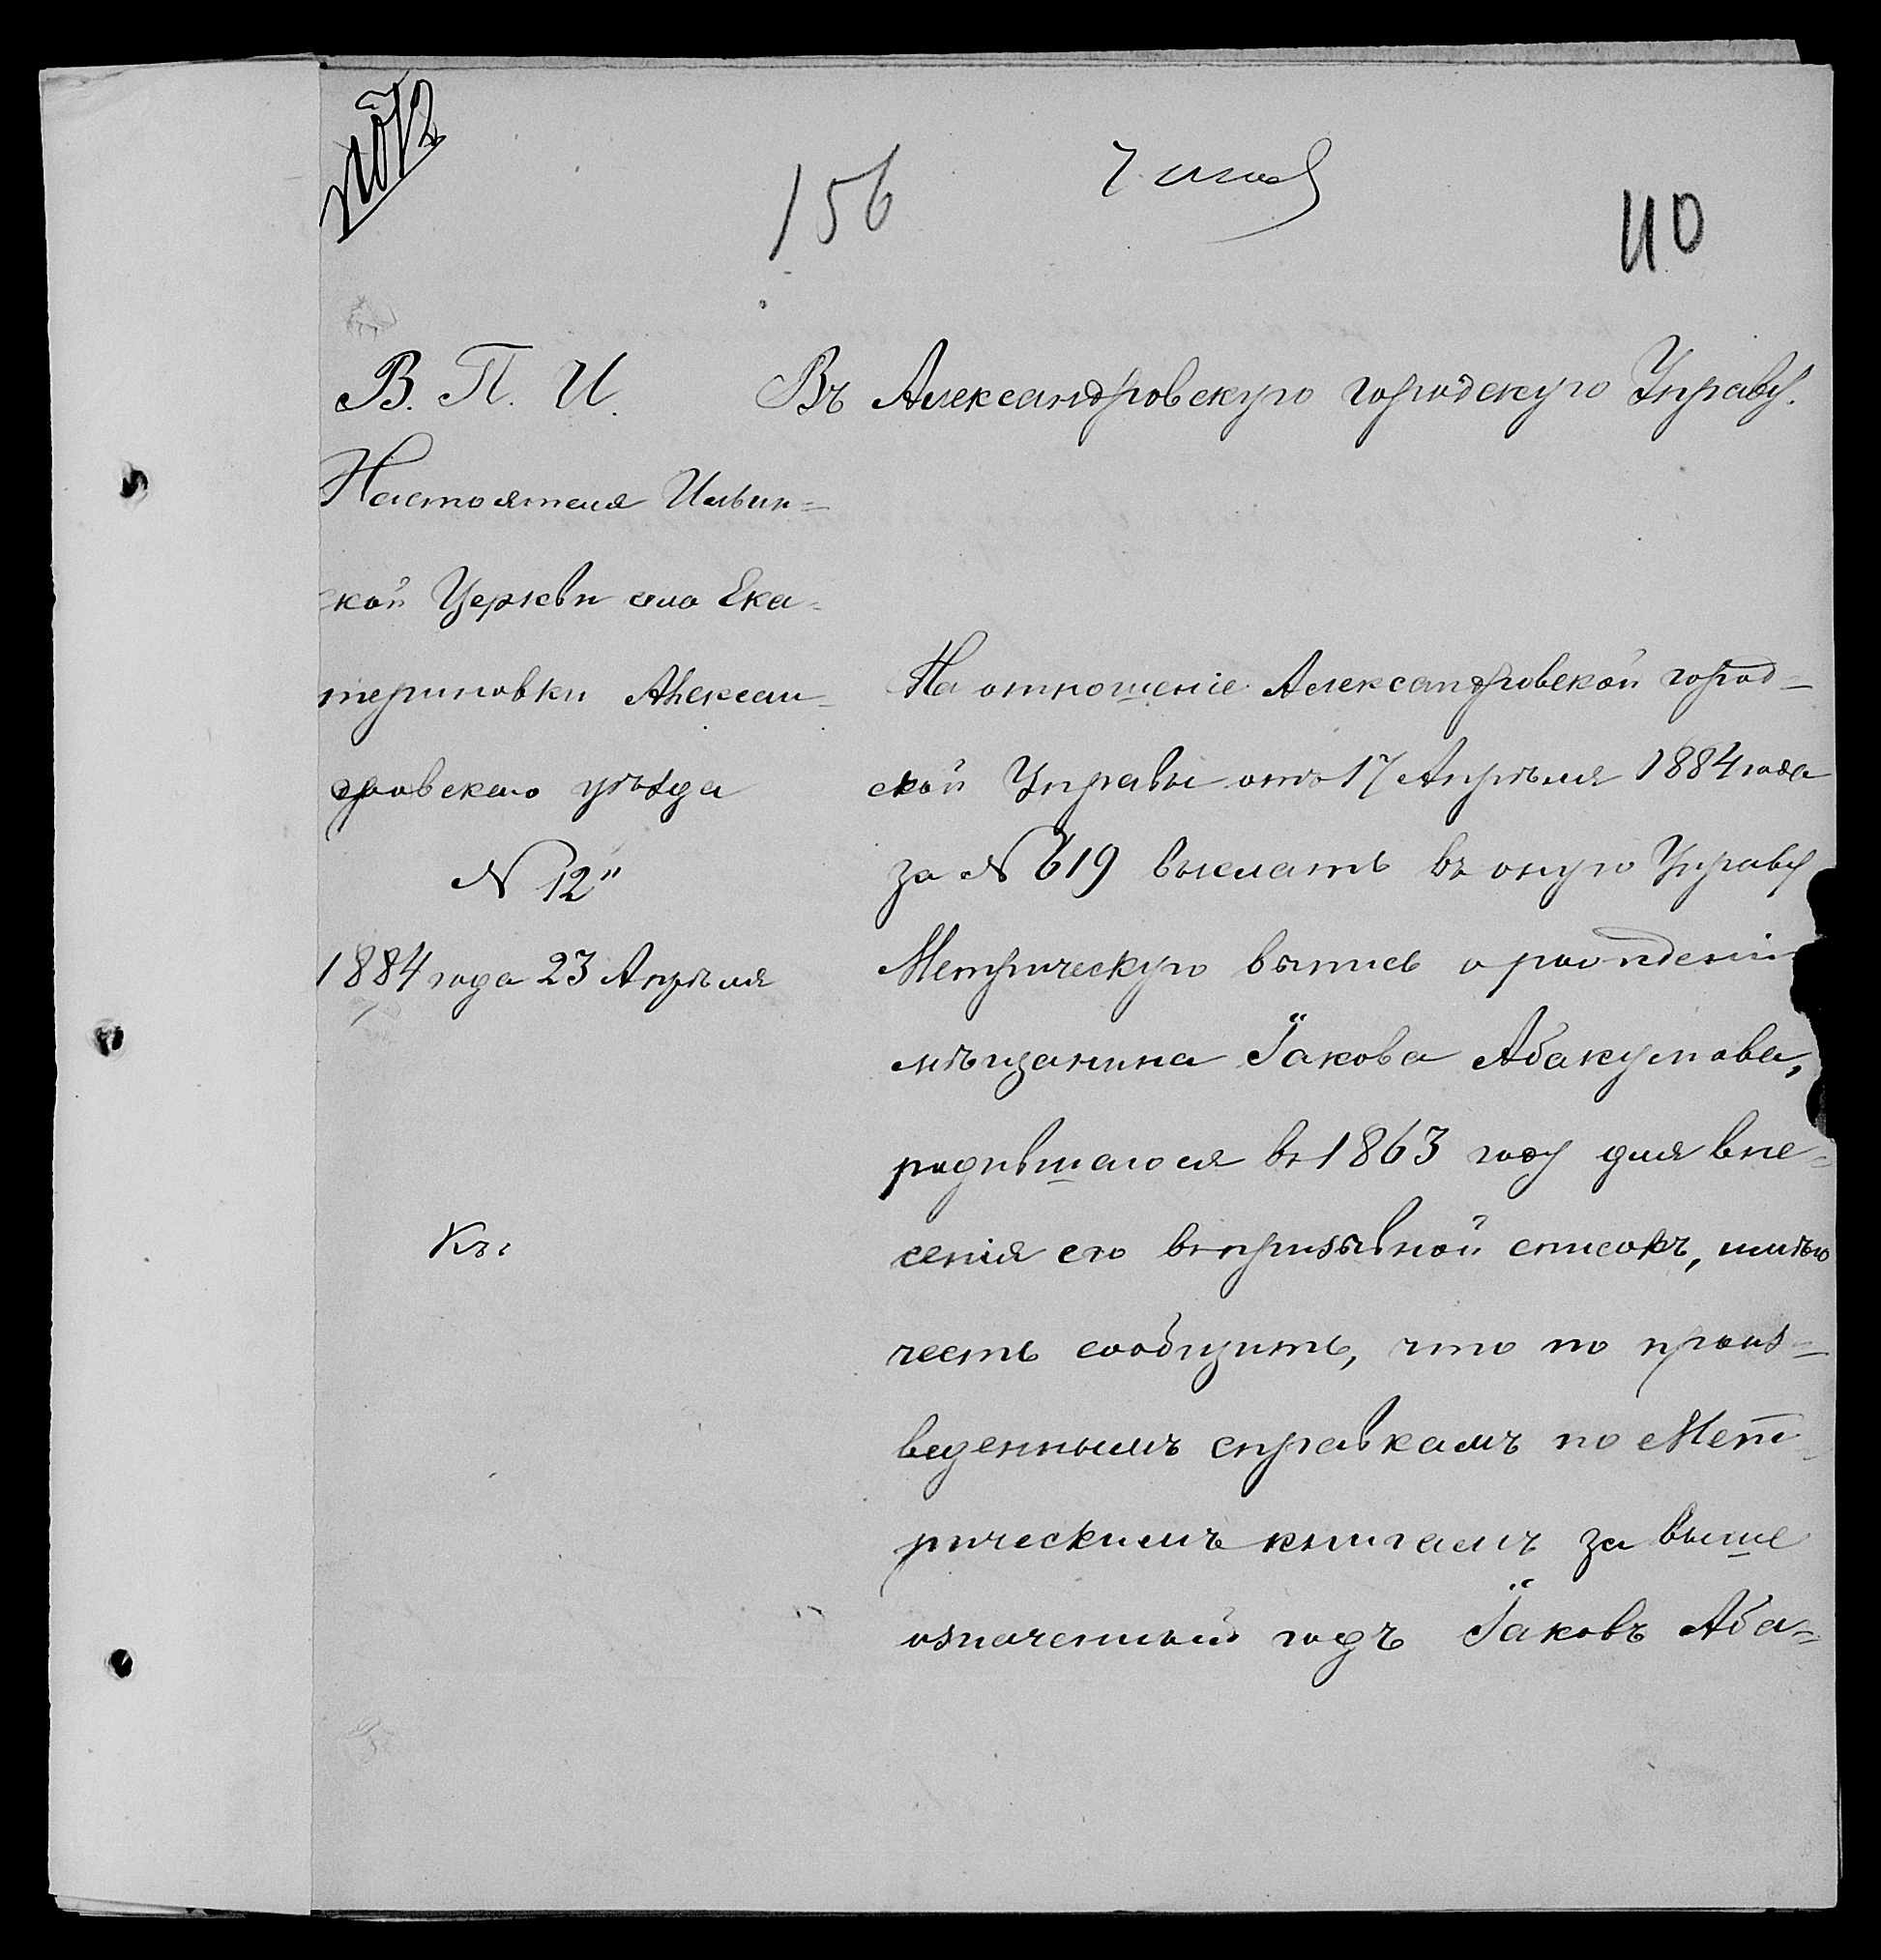 156
110
В. П. И.
Настоятеля Ильин=
ской Церкви села Ека=
териновки Алексан=
дровскаго уѣзда
№ 12"
1884 года 23 Апрѣля
Въ Александровскую городскую Управу.
На отношеніе Александровской город=
ской Управы отъ 17 Апрѣля 1884 года
за № 619 выслать въ оную Управу
Метрическую выпись о рождении
мѣщанина Іакова Абакумова,
родившагося въ 1863 году для вне=
сенія его въ призывной списокъ, имѣю
честь сообщить, что по произ=
веденнымъ справкамъ по Мет=
рическимъ книгамъ за выше
означенный годъ Іаковъ Аба=